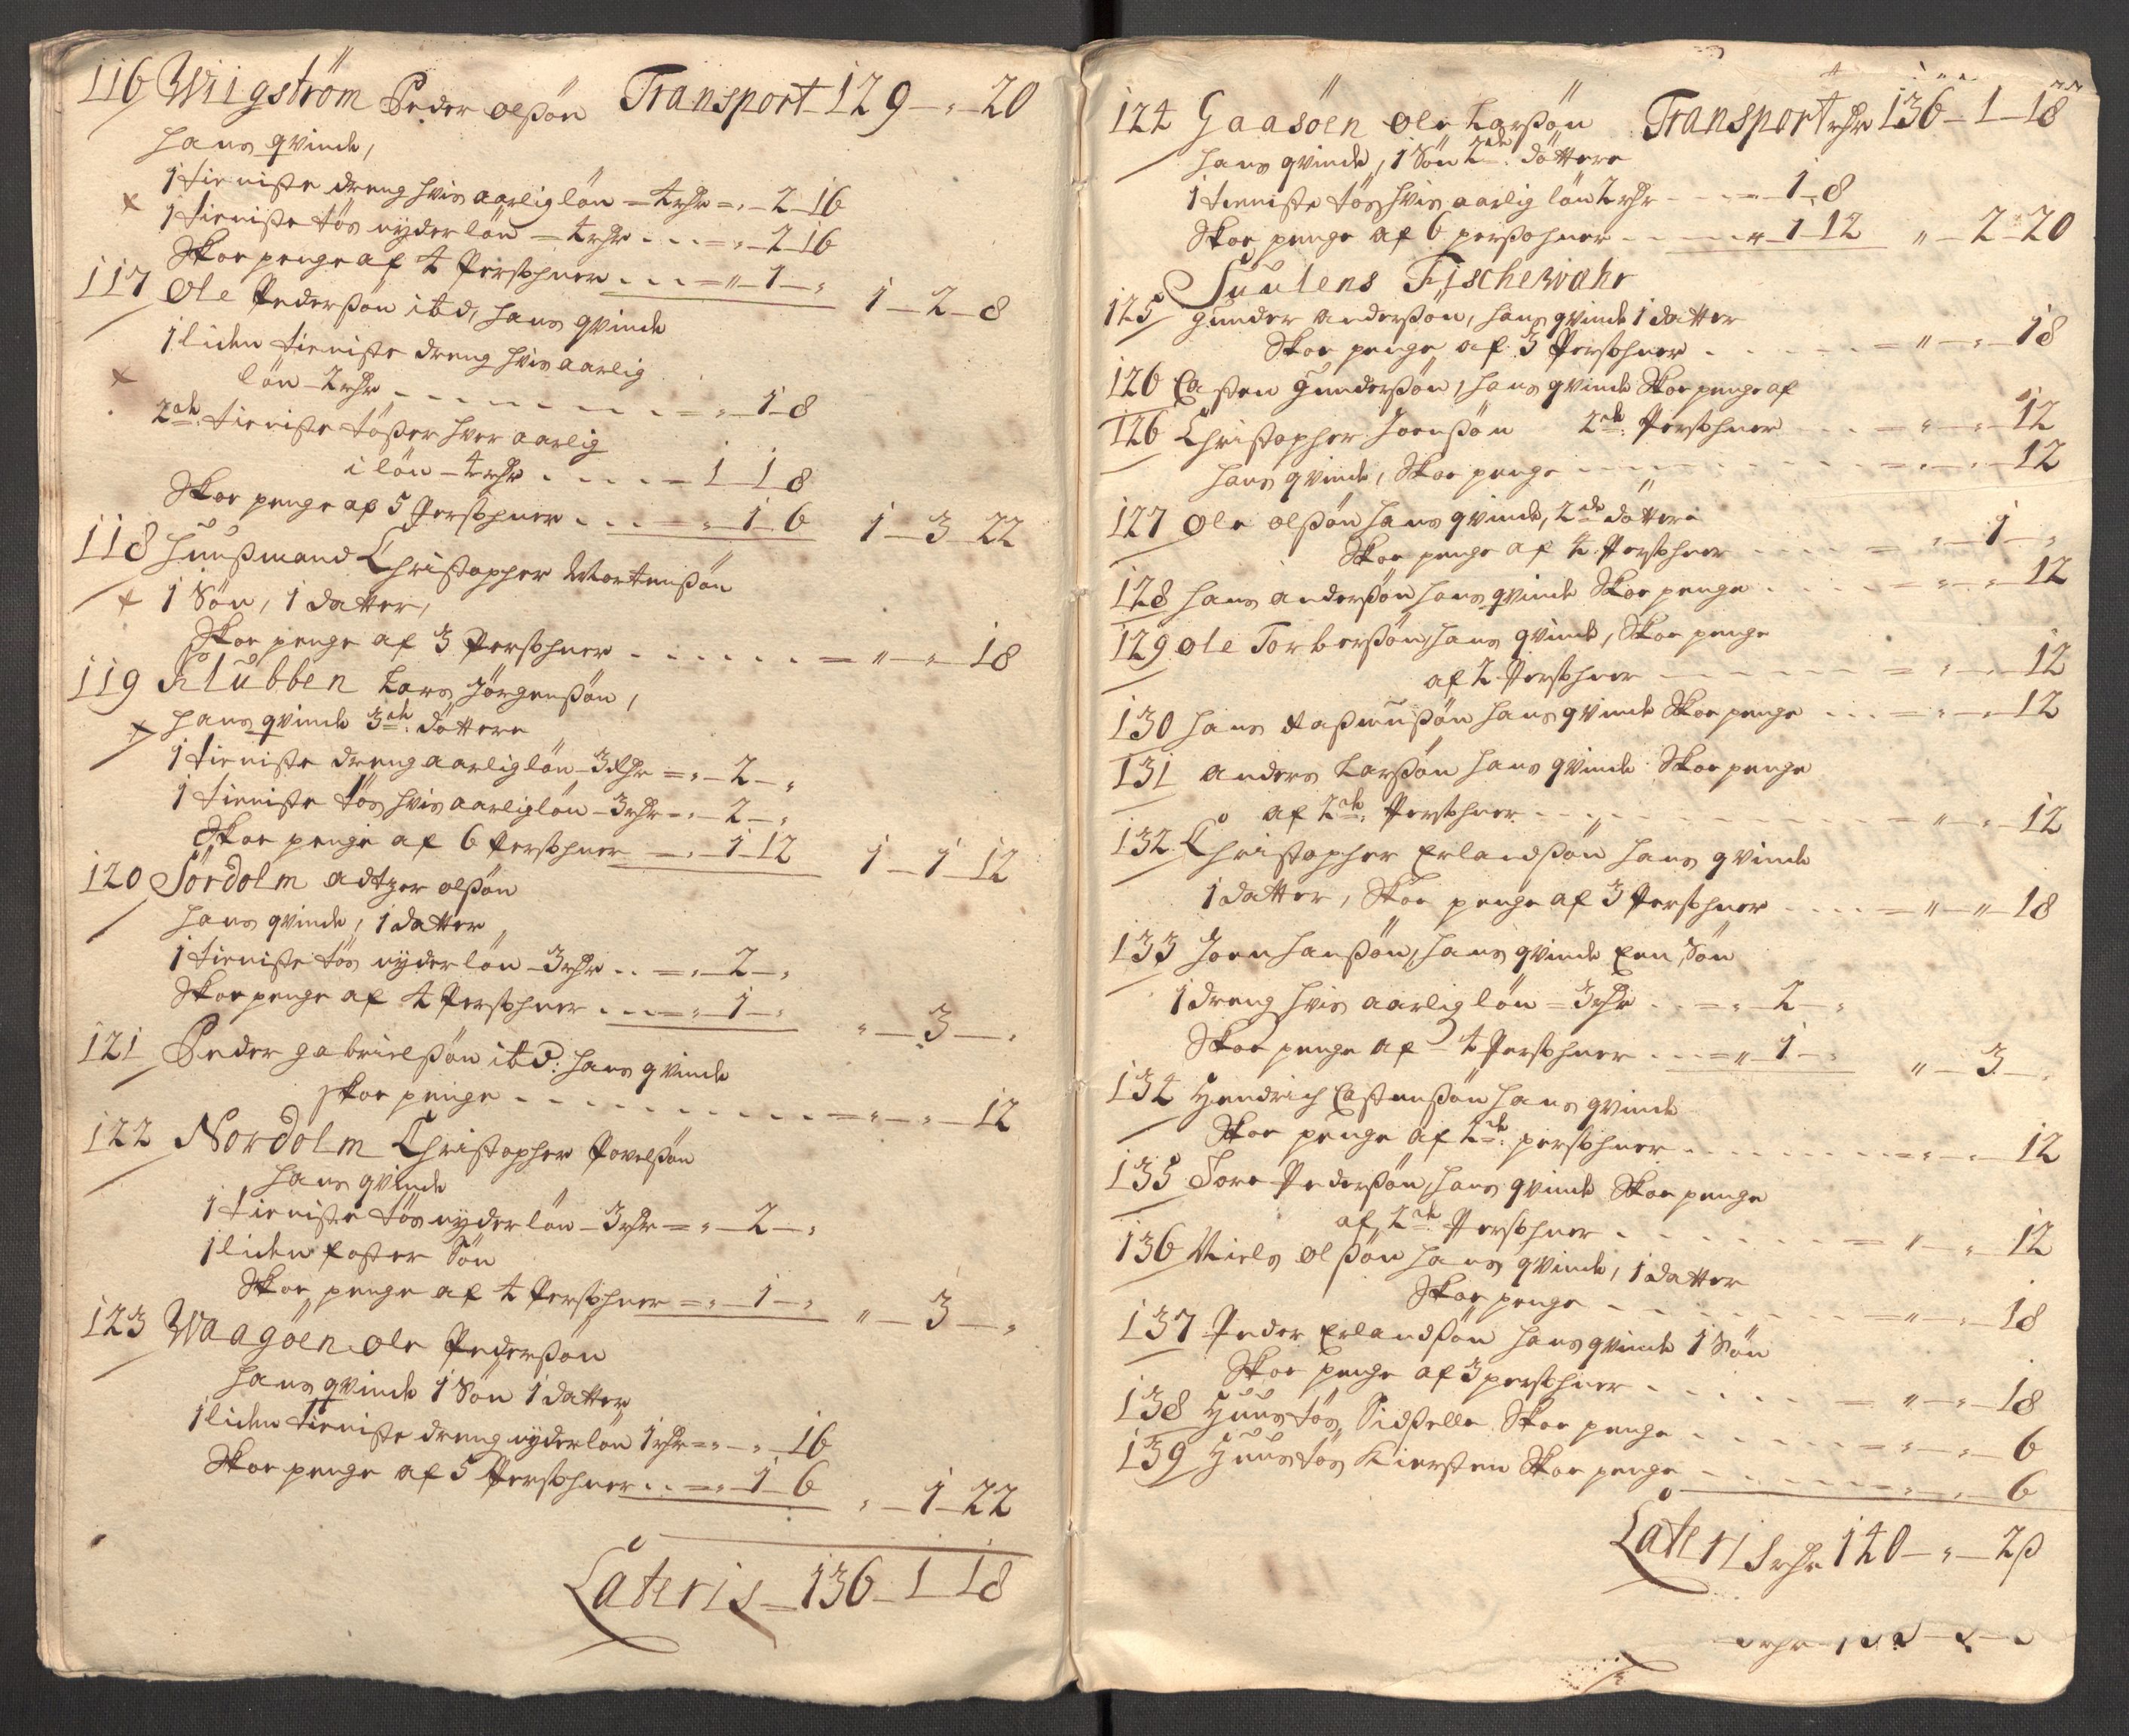 116 Wiigström Peder olßön Transport 129 — " — 20
hans qvinde,
1 tieniste dreng hvis aarlig lön — 4 rdr = " — 2 — 16
1 tieniste tös nyder lön — 4 rdr . . . = " — 2 — 16
Skoe penge af 4 Persohner . . . = " — 1 — " 1 — 2 — 8
117 Ole Pederßön ibd, hans qvinde
1 liden tieniste dreng hvis aarlig
lön — 2 rdr . . . . = " — 1 — 8
2de tieniste tößer hver aarlig
i lön — 4 rdr . . . . — 1 — 1 — 8
Skoe penge af 5 Persohner . . . = " — 1 — 6 1 — 3 — 22
118 huußmand Christopher Mortenßön
1 Sön, 1 datter,
Skoe penge af 3 Persohner . . . . . . = " — " — 18
119 Klubben Lars Jörgenßön,
hans qvinde 3de döttere
1 tieniste dreng aarlig lön — 3 Rdr = " — 2 — "
1 tieniste tös hvis aarlig lön — 3 rdr = " — 2 — "
Skoe penge af 6 Persohner — " — 1 — 12 1 — 1 — 12
120 Sördolm adtzer olßön
hans qvinde, 1 datter
1 tieniste tös nyder lön — 3 rdr . . = " — 2 — "
Skoe penge af 4 Persohner . . . = " — 1 — " " — 3 — "
121 Peder gabrielßön ibd: hans qvinde
skoe penge . . . . . . = " — " — 12
122 Nordolm Christopher Povelßön
hans qvinde
1 tieniste tös nyder lön — 3 rdr = " — 2 — "
1 liden foster Sön
Skoe penge af 4 Persohner = " — 1 — " " — 3 — "
123 Waagöen ole Pederßön
hans qvinde 1 Sön 1 datter
1 liden tieniste dreng nyder lön 1 rdr = " — " — 16
Skoe penge af 5 Persohner . . = " — 1 — 6 " — 1 — 22
Lateris — 136 — 1 — 18
124 Gaasöen ole Larßön Transport rdr 136 — 1 — 18
hans qvinde, 1 Sön 2de döttere
1 tieniste tös hvis aarlig lön 2 rdr . . . = 1 — 8
Skoe penge af 6 persohner . . . " — 1 — 12 " — 2 — 20
Suulens Fischewahr
125 gunder anderßön, hans qvinde 1 datter
Skoe penge af 3 Persohner . . . . = " — " — 18
126 Casten gunderßön, hans qvinde Skoe penge af
2de Persohner . . . = " — " — 12
126 Christopher Joenßön
hans qvinde, Skoe penge . . . . = " — " — 12
127 Ole olßön hans qvinde, 2de döttere
Skoe penge af 4 Persohner . . . . = " — 1 — "
128 hans anderßön hans qvinde Skoe penge . . . . = " — " — 12
129 Ole Torberßön, hans qvinde, Skoe penge
af 2 Persohner . . . . = " — " — 12
130 hans Raßmußön hans qvinde Skoe penge . . . = " — " — 12
131 anders Larßön hans qvinde Skoe penge
af 2de Persohner . . . . = " — " — 12
132 Christopher Erlandßön hans qvinde
1 datter, Skoe penge af 3 Persohner . . . = " — " — 18
133 Joen hanßön, hans qvinde Een Sön
1 dreng hvis aarlig lön = 3 rdr . . = " — 2 — "
Skoe penge af 4 Persohner . . . = " — 1 — " " — 3 — "
134 Hendrich Castenßön hans qvinde
Skoe penge af 2de persohner . . . . = " — " — 12
135 Tore Pederßön, hans qvinde Skoe penge
af 2de Persohner . . . . = " — " — 12
136 Niels olßön hans qvinde, 1 datter
Skoe penge . . . . = " — " — 18
137 Peder Erlandßön hans qvinde 1 Sön
Skoe penge af 3 persohner . . . . = " — " — 18
138 Huus tös Sidßelle Skoe penge . . . . = " — " — 6
139 Huus tös Kiersten Skoe penge . . . . = " — " — 6
Lateris rdr 140 — " — 2 ß